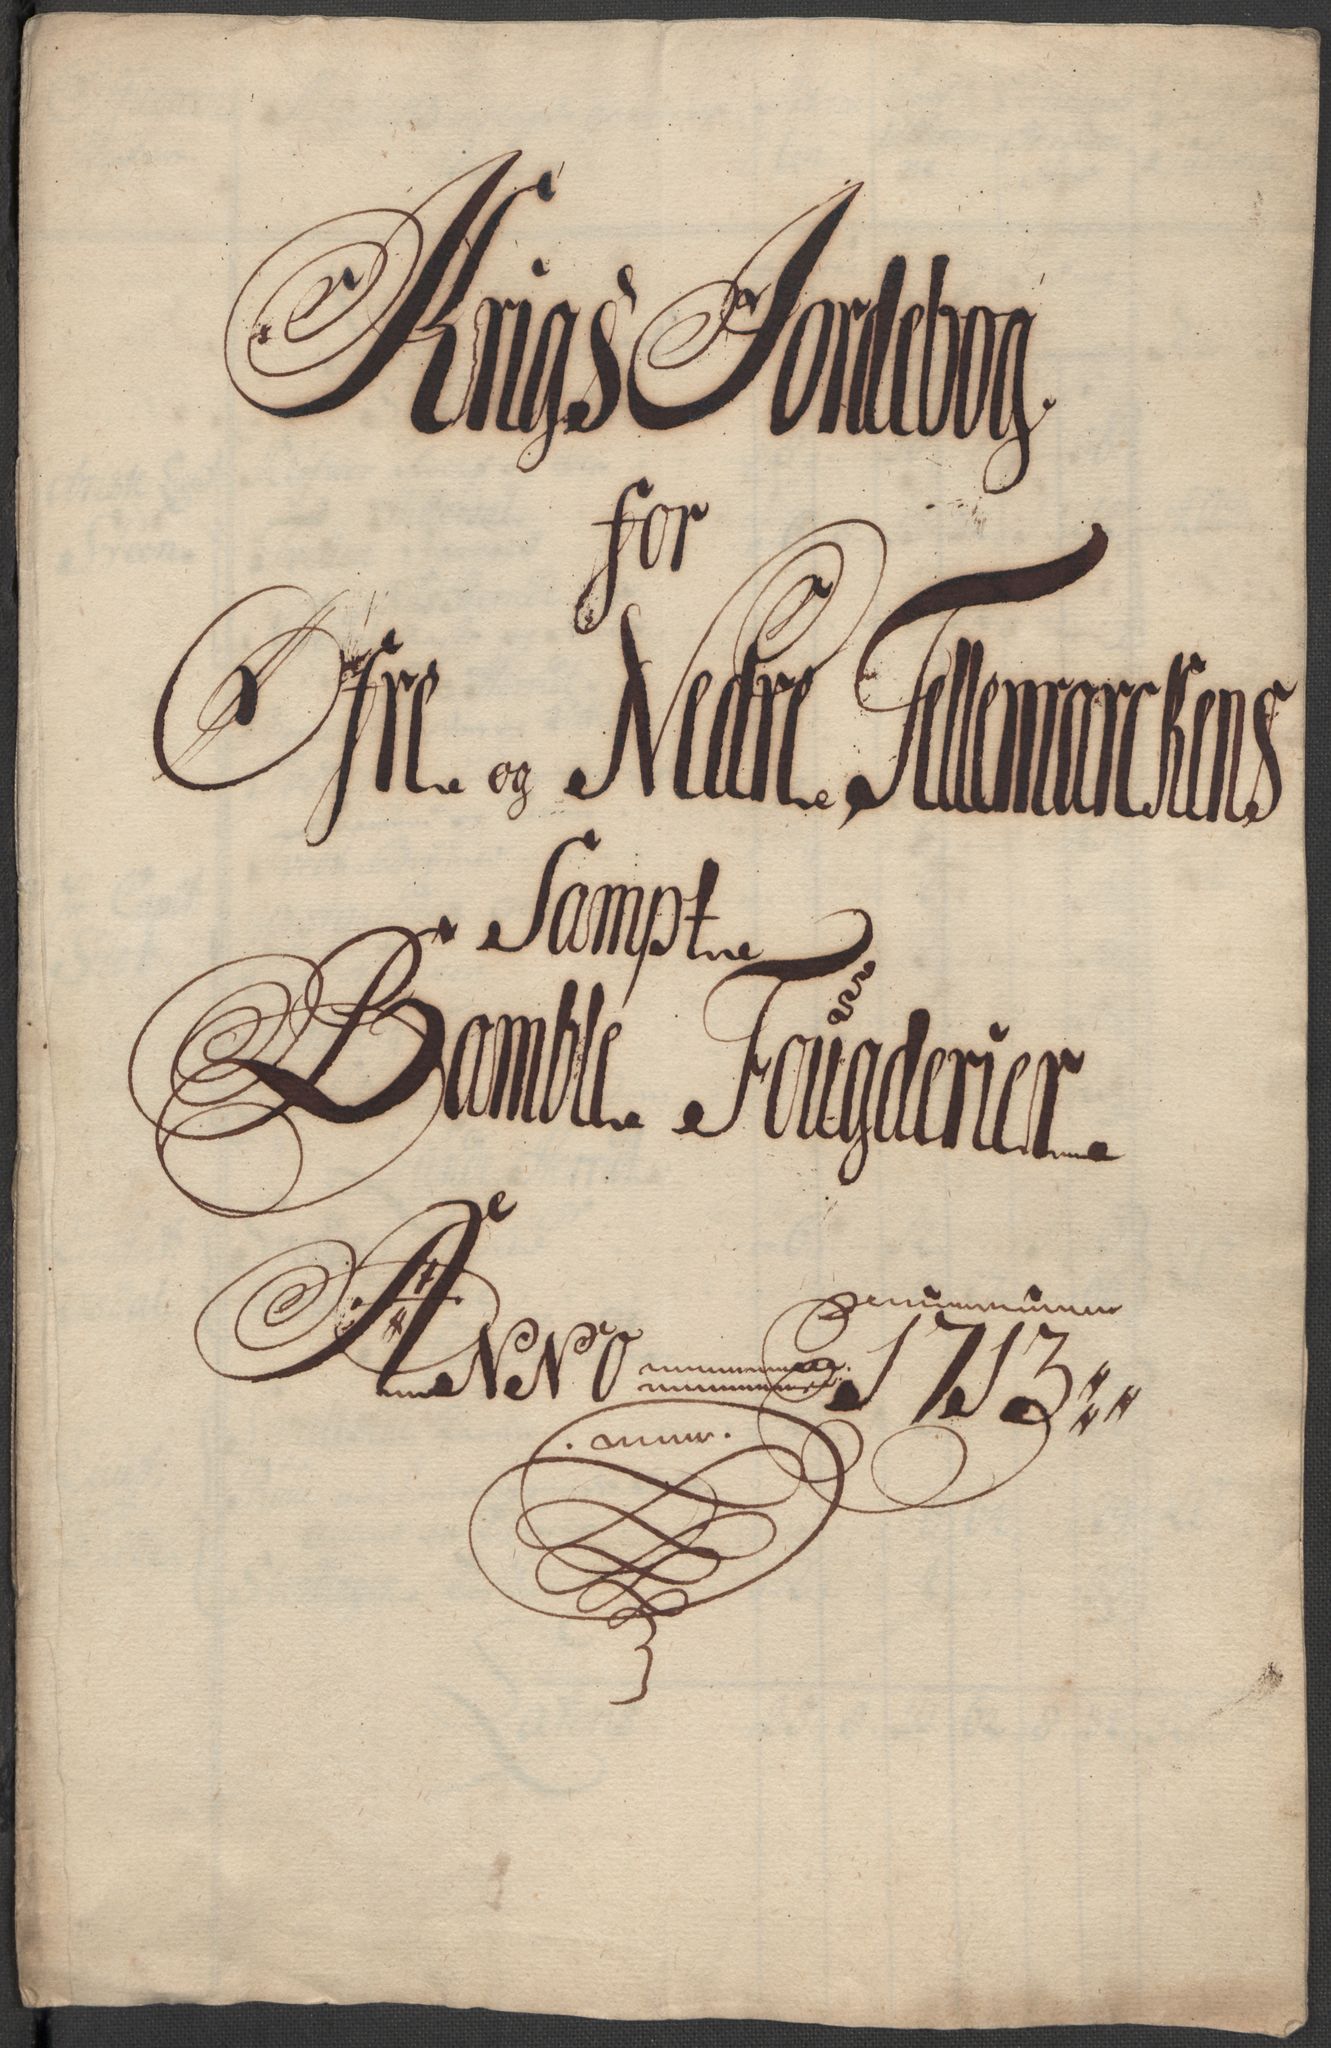 Krigs Jordebog
for
Øfre og Nedre Tellemarckens
Sampt
Bamble Foügderier
ANNO 1713